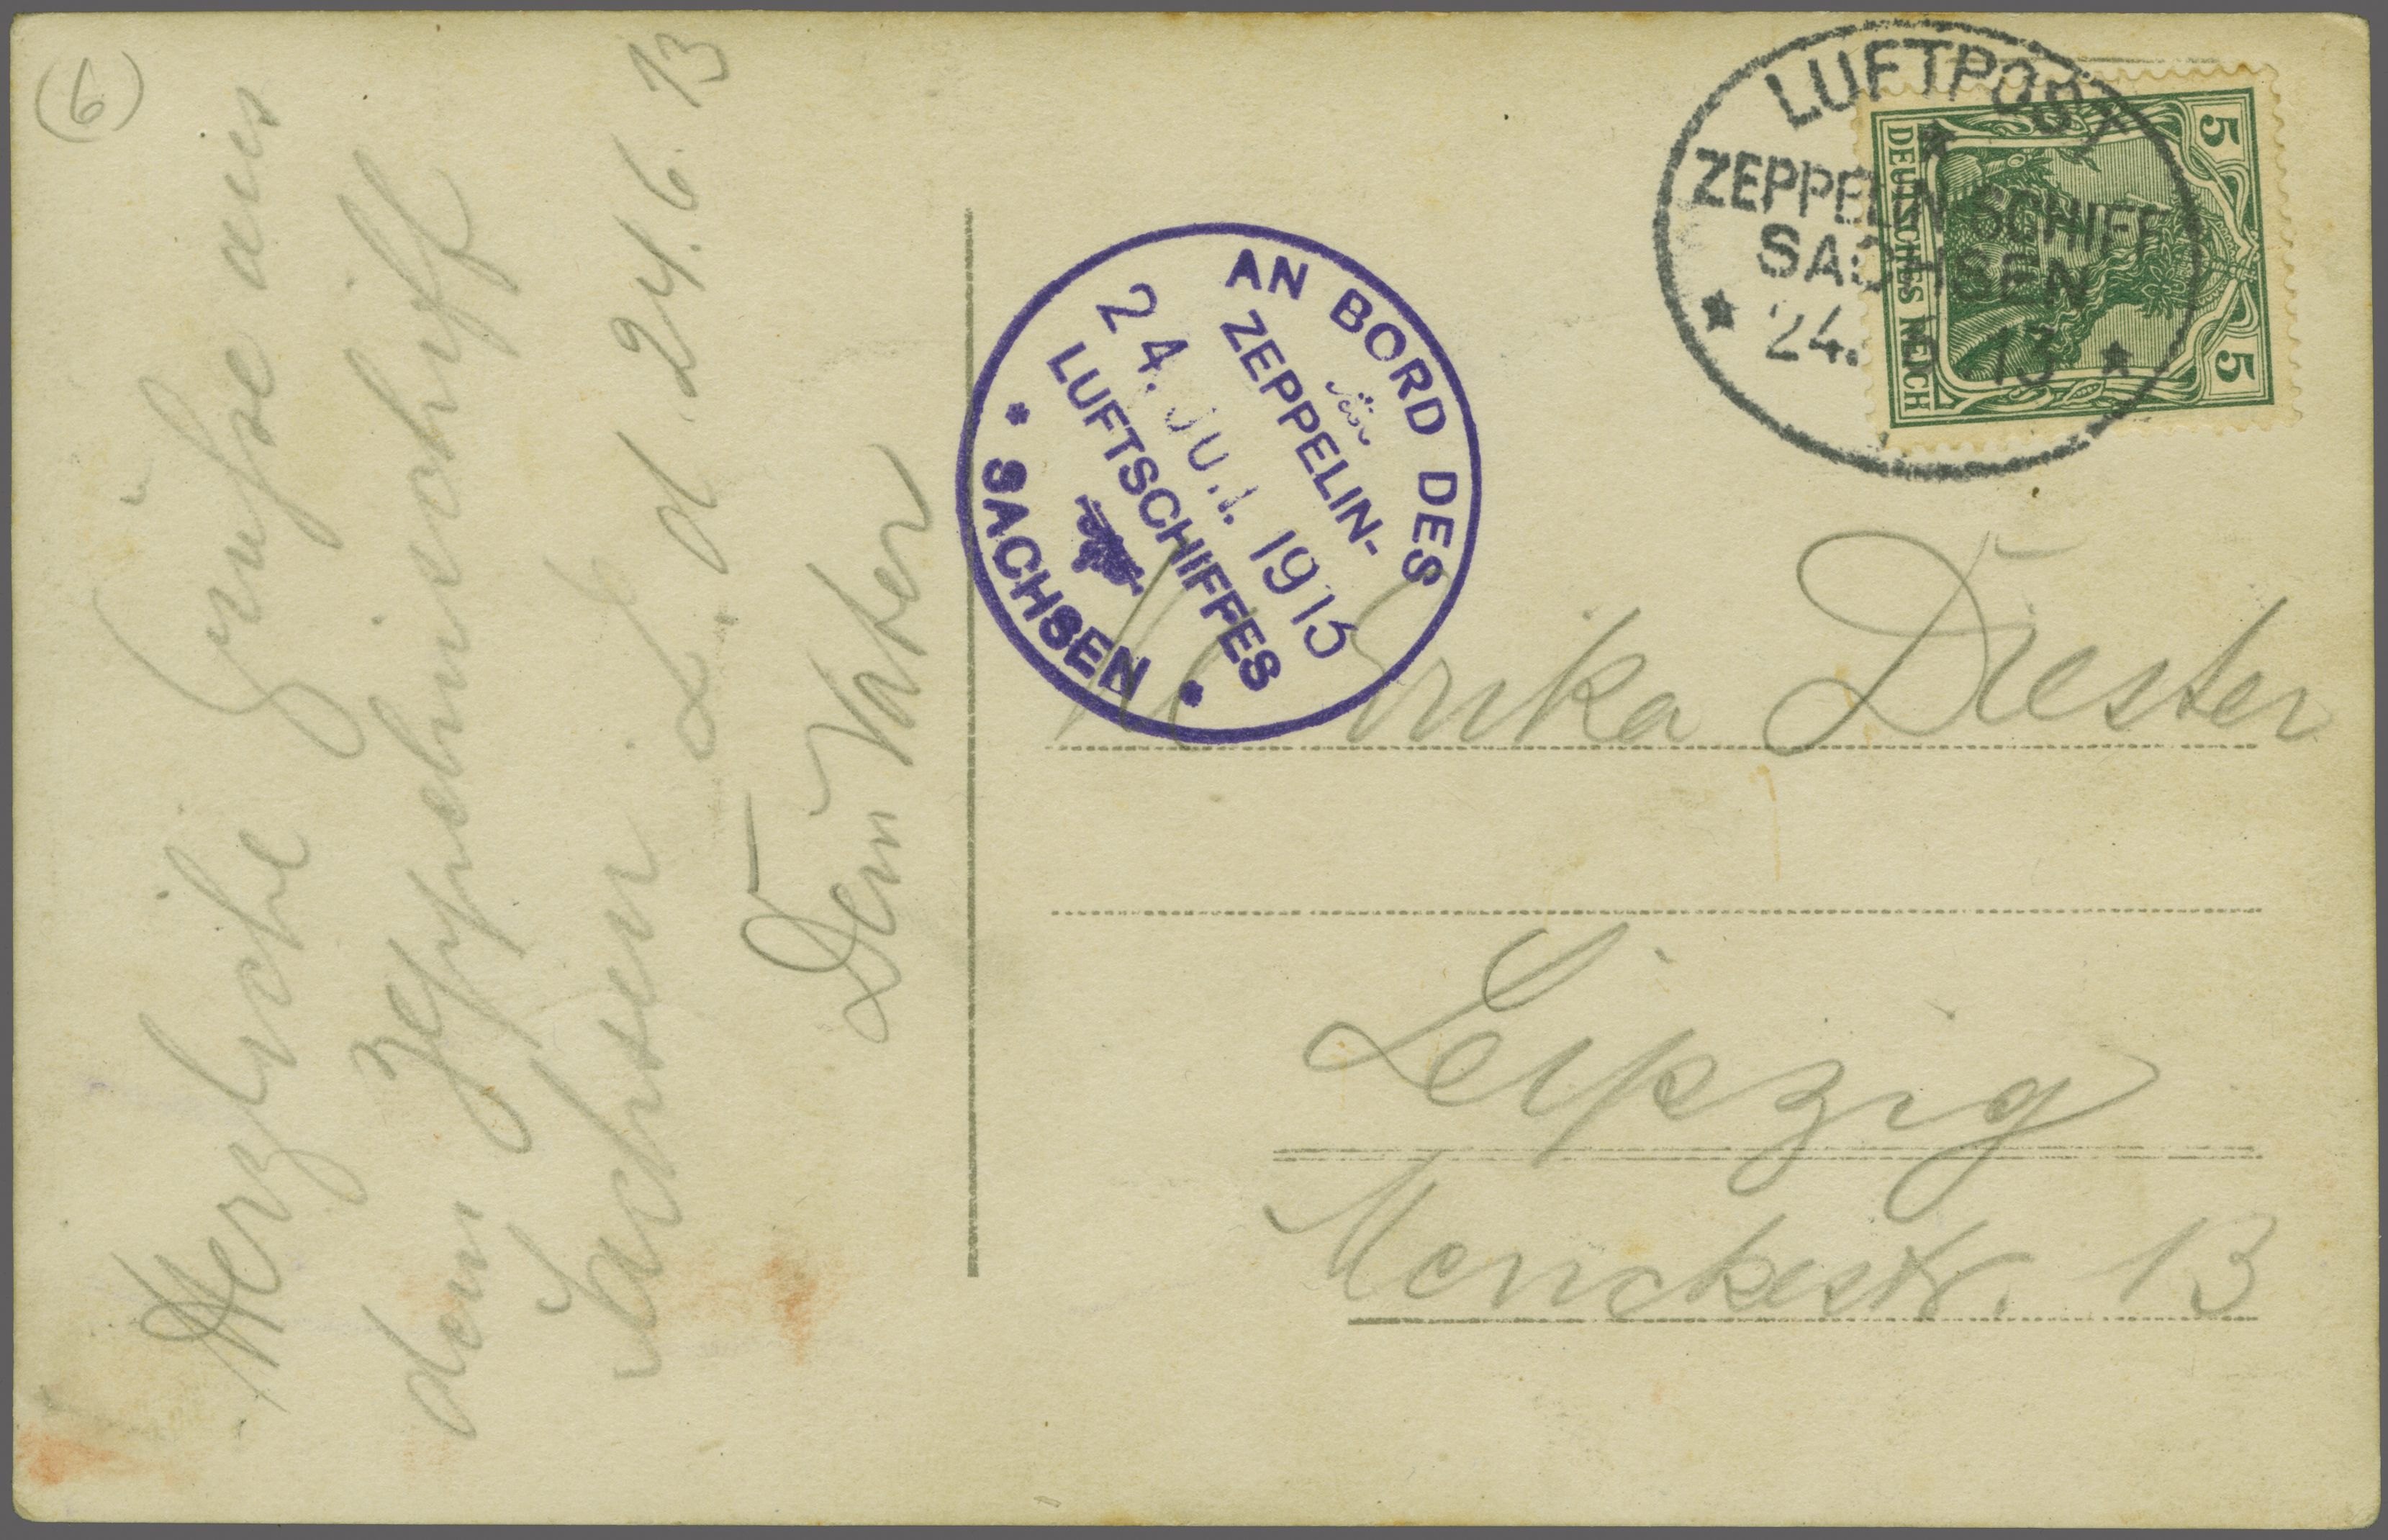 (6)
Herzliche Grüsse aus
dem Zeppelinschiff
Sachsen L. d. 24.6.13
Dein Vater
AN BORD DES
ZEPPELIN-
LUFTSCHIFFES
SACHSEN
LUFTPOST
ZEPPELINSCHIFF
SACHSEN
24. 13
5 5
DEUTSCHES REICH
Erika Diester
Leipzig
Menckestr. 13